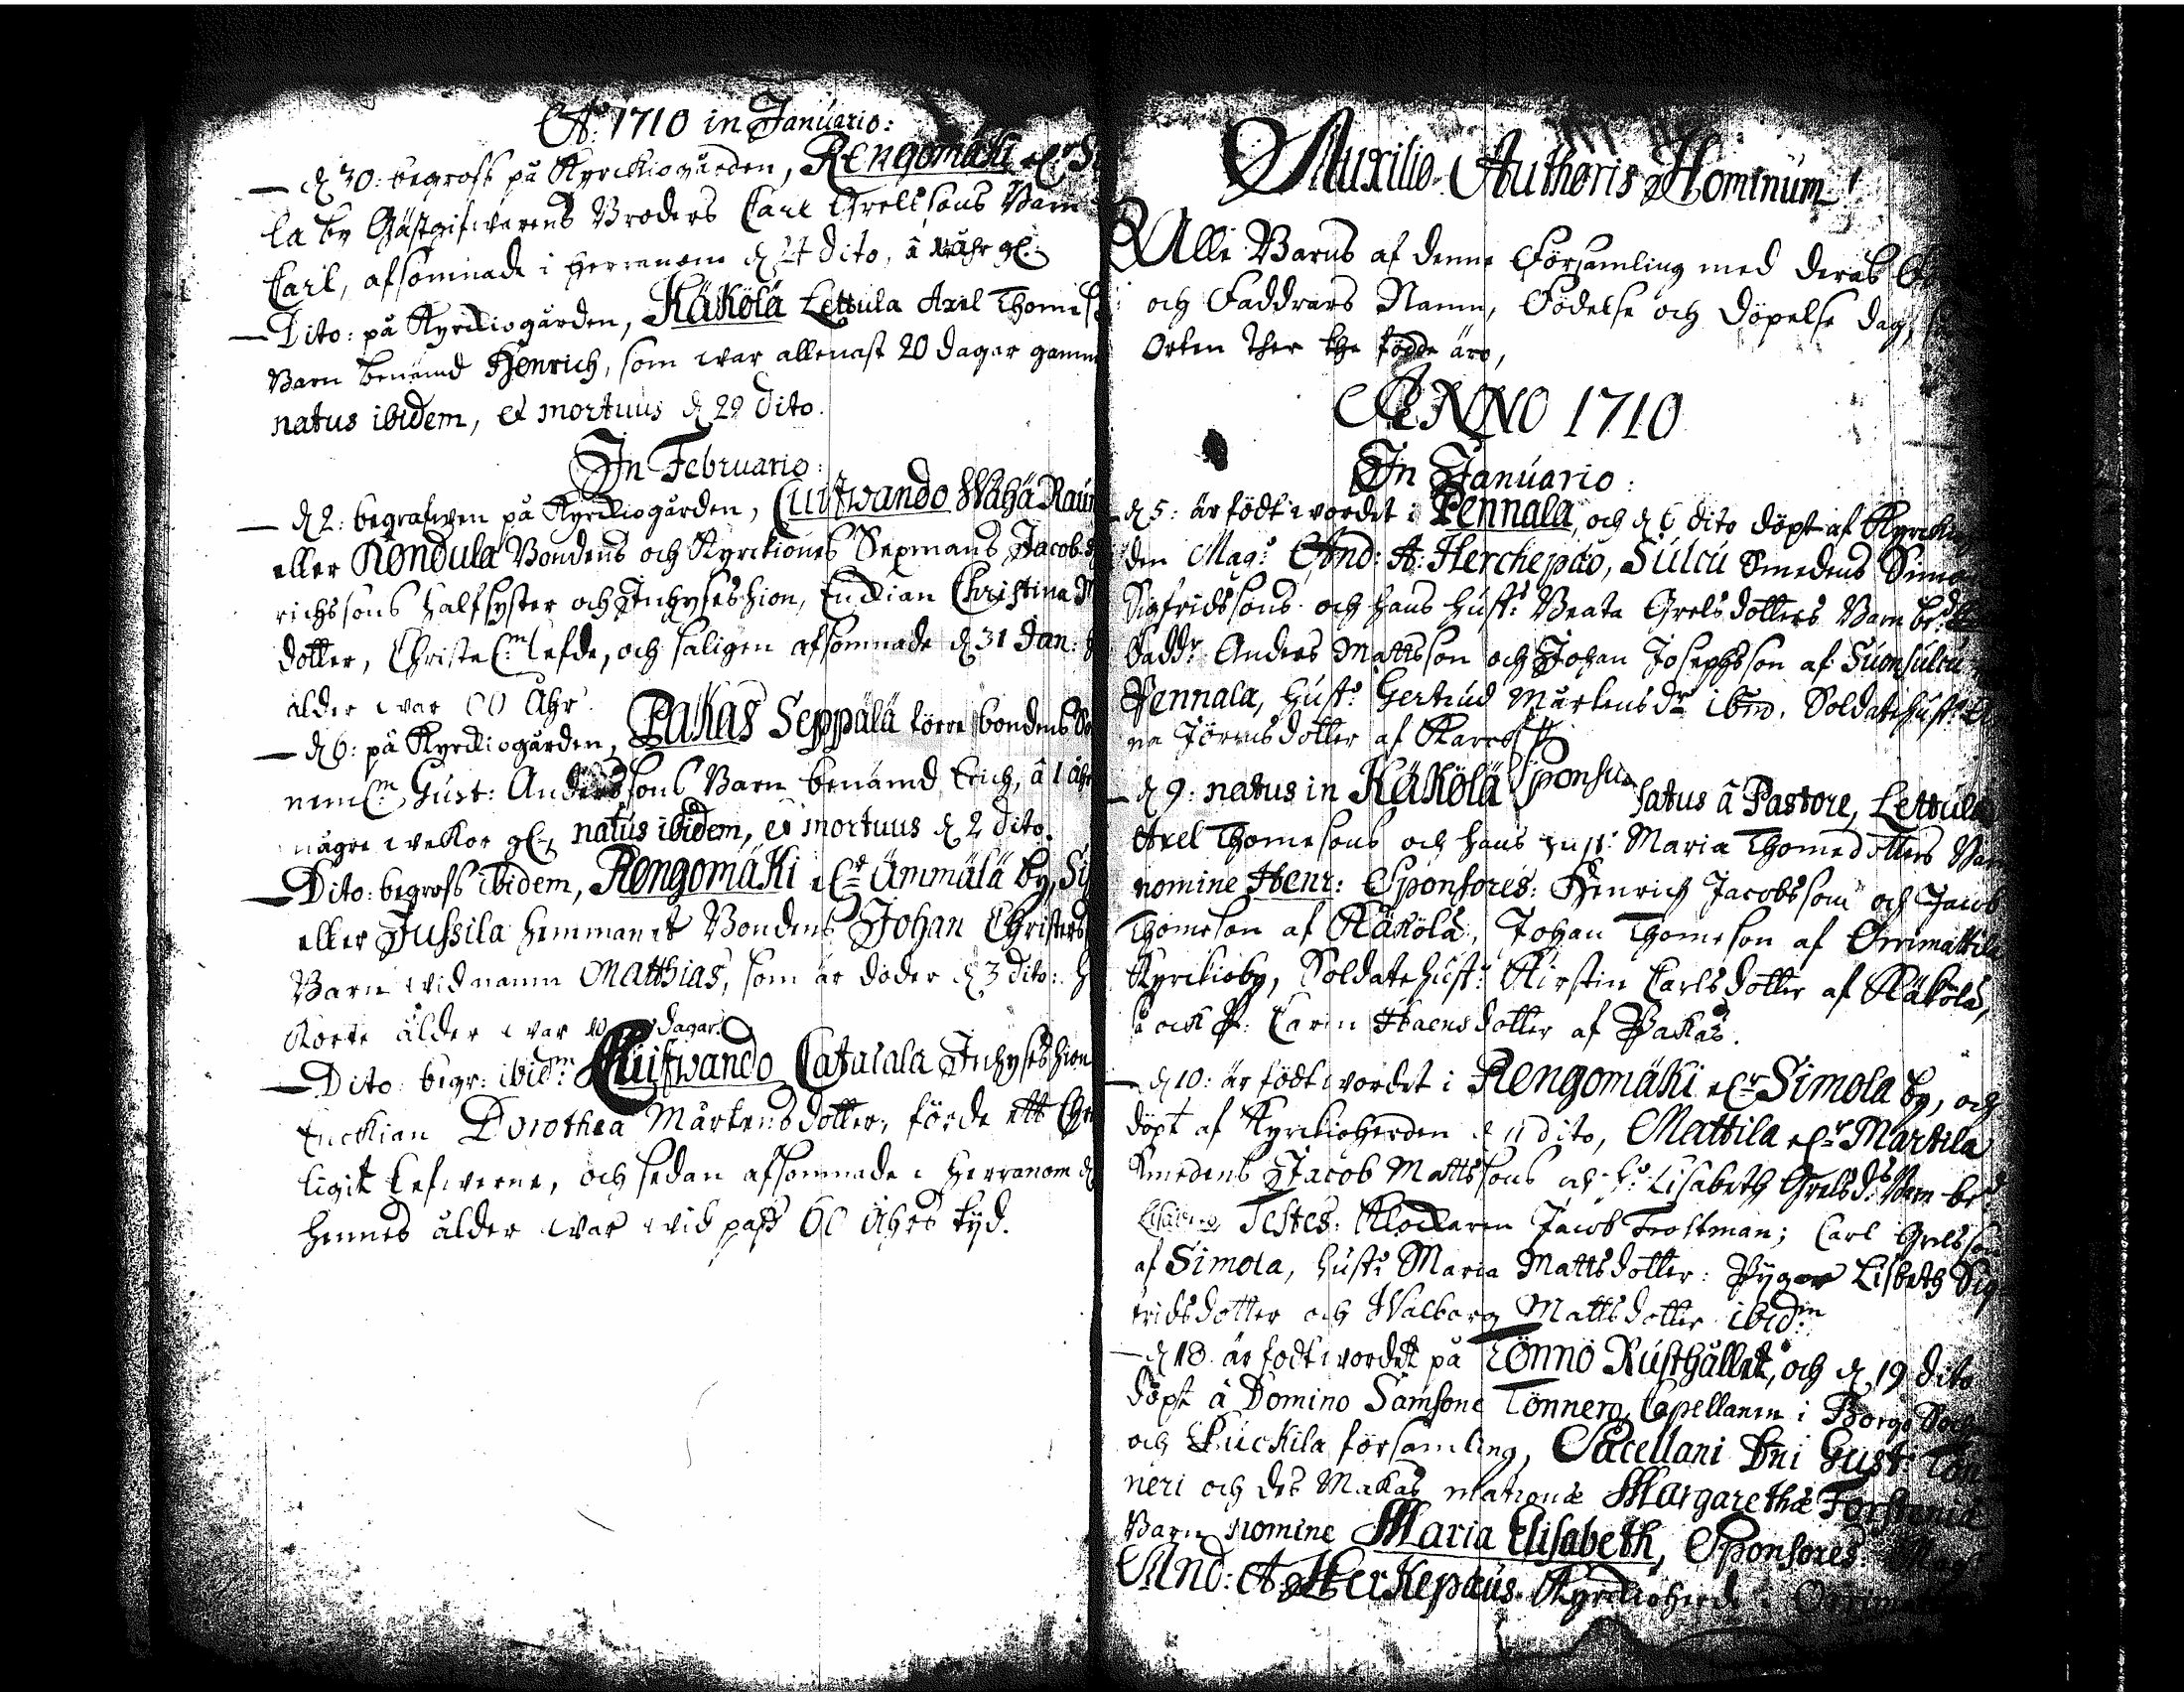 A:o 1710 in Januario:
— d 30: begrofs på Kyrckiogården, Rengomäki elr
la by Gästgifwarens Broders Carl Grelssons Barn
Carl, afsomnade i Herranom d 24 dito, â åhr gl.
— Dito: på Kyrckiogården, Käkölä Lettula Axel Thomes
Barn benämd Henrich, som war allenast 20 dagar gamm
natus ibidem, et mortuus d 29 dito.
In Februario:
— d 2: begrafwen på Kyrckiogården, Cuifwando Wähä
eller Röndula Bondens och Kyrckiones Sexmans Jacob
richssons halfsyster och Inhyseshion, Enckian Christina
dotter, Christel:n lefde, och saligen afsomnade d 31 Jan:
ålder war 60 Åhr.
— d 6: på Kyrckiogården, Pakas Seppälä torre bondens
Gust: Anderssons Barn benämd Erich, â 1 åhr
någre wekor gl, natus ibidem, et mortuus d 2 dito.
— Dito: begrofs ibidem, Rengomäki elr Ämmälä by,
eller Jussila hemmanet Bondens Johan Christers
Barn widnamn Matthias, som är döder d 3 dito:
Korte ålder war 10 dagar.
— Dito: begr: ibid:m Kuifwando Catajala Inhyseshion
Enckian Dorothea Mårtensdotter, förde ett
ligit lefwerne, och sedan afsomnade i Herranom d
hennes ålder war wid pass 60 åhrs tijd.
Auxilio Authoris Hominum!
Alle Barns af denne Församling med deras
och Faddrars Namn, Födelse och Döpelse dag,
Orten ther the födde äro,
ANNO 1710
In Januario:
— d 5: är födt wordet i Pennala, och d 6 dito döpt af
den Mag:r And: A: Herchepæo, Sulcu Smedens Simon
Sigfridssons och hans hust: Beata Grelsdotters Barn
Fadd:r Anders Mattsson och Johan Josephsson af Suonsulcu
Pennala, hust: Gertrud Mårtensd:r ibm, Soldatehust:
na Jöransdotter af
— d 9: natus in Käkölä Sponsu satus â Pastore, Lettula
Axel Thomesons och hans hust: Maria Thomedotters Barn
nomine Henr: Sponsores: Henrich Jacobsson och Jacob
Thomeson af Käkölä, Johan Thomeson af Orrimattila
Kyrckioby, Soldatehust: Kirstin Carlsdotter af Käkölä,
P: Carin af Pakas.
— d 10: är födt wordet i Rengomäki elr Simola by, och
döpt af Kyrckioherden d 11 dito, Mattila elr Martila
Smedens Jacob Mattssons och h: Lisabeth Grelsd:s Barn
Testes: Klockaren Jacob Trostman; Carl Grelsson
af Simola, hust: Maria Mattsdotter: Pygor Lisbeth Sig-
fridsdotter och Walborg Mattsdotter ibid:m
— d 18. är födt wordet på Tönnö Rusthållet, och d 19 dito
döpt â Domino Samsone Tönnero, Capellanen i Borgo
och Puckila församling, Sacellani Dni Gust: Tön-
neri och des Makas matronæ Margarethæ Forstenia
Barn nomine Maria Elisabeth, Sponsores: Mag:r
And: A: Herkepæus Kyrckioherde i